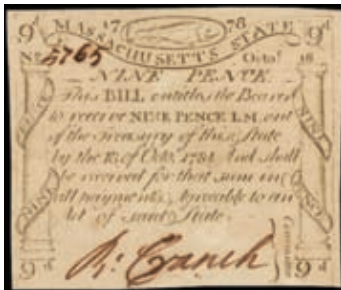 9d 17 78 9d
MASSACHUSETTS STATE
No 5765 Octor 18
NINE PENCE
This BILL entitles the Bearer
to receive NINE PENCE L.M. out
of the Treasury of this State
by the 18 of Octo. 1784 And shall
be received for that sum in
all payments, Agreeable to an
Act of said State.
NINE PENCE
NINE PENCE
R: Cranch
Committee
9d 9d